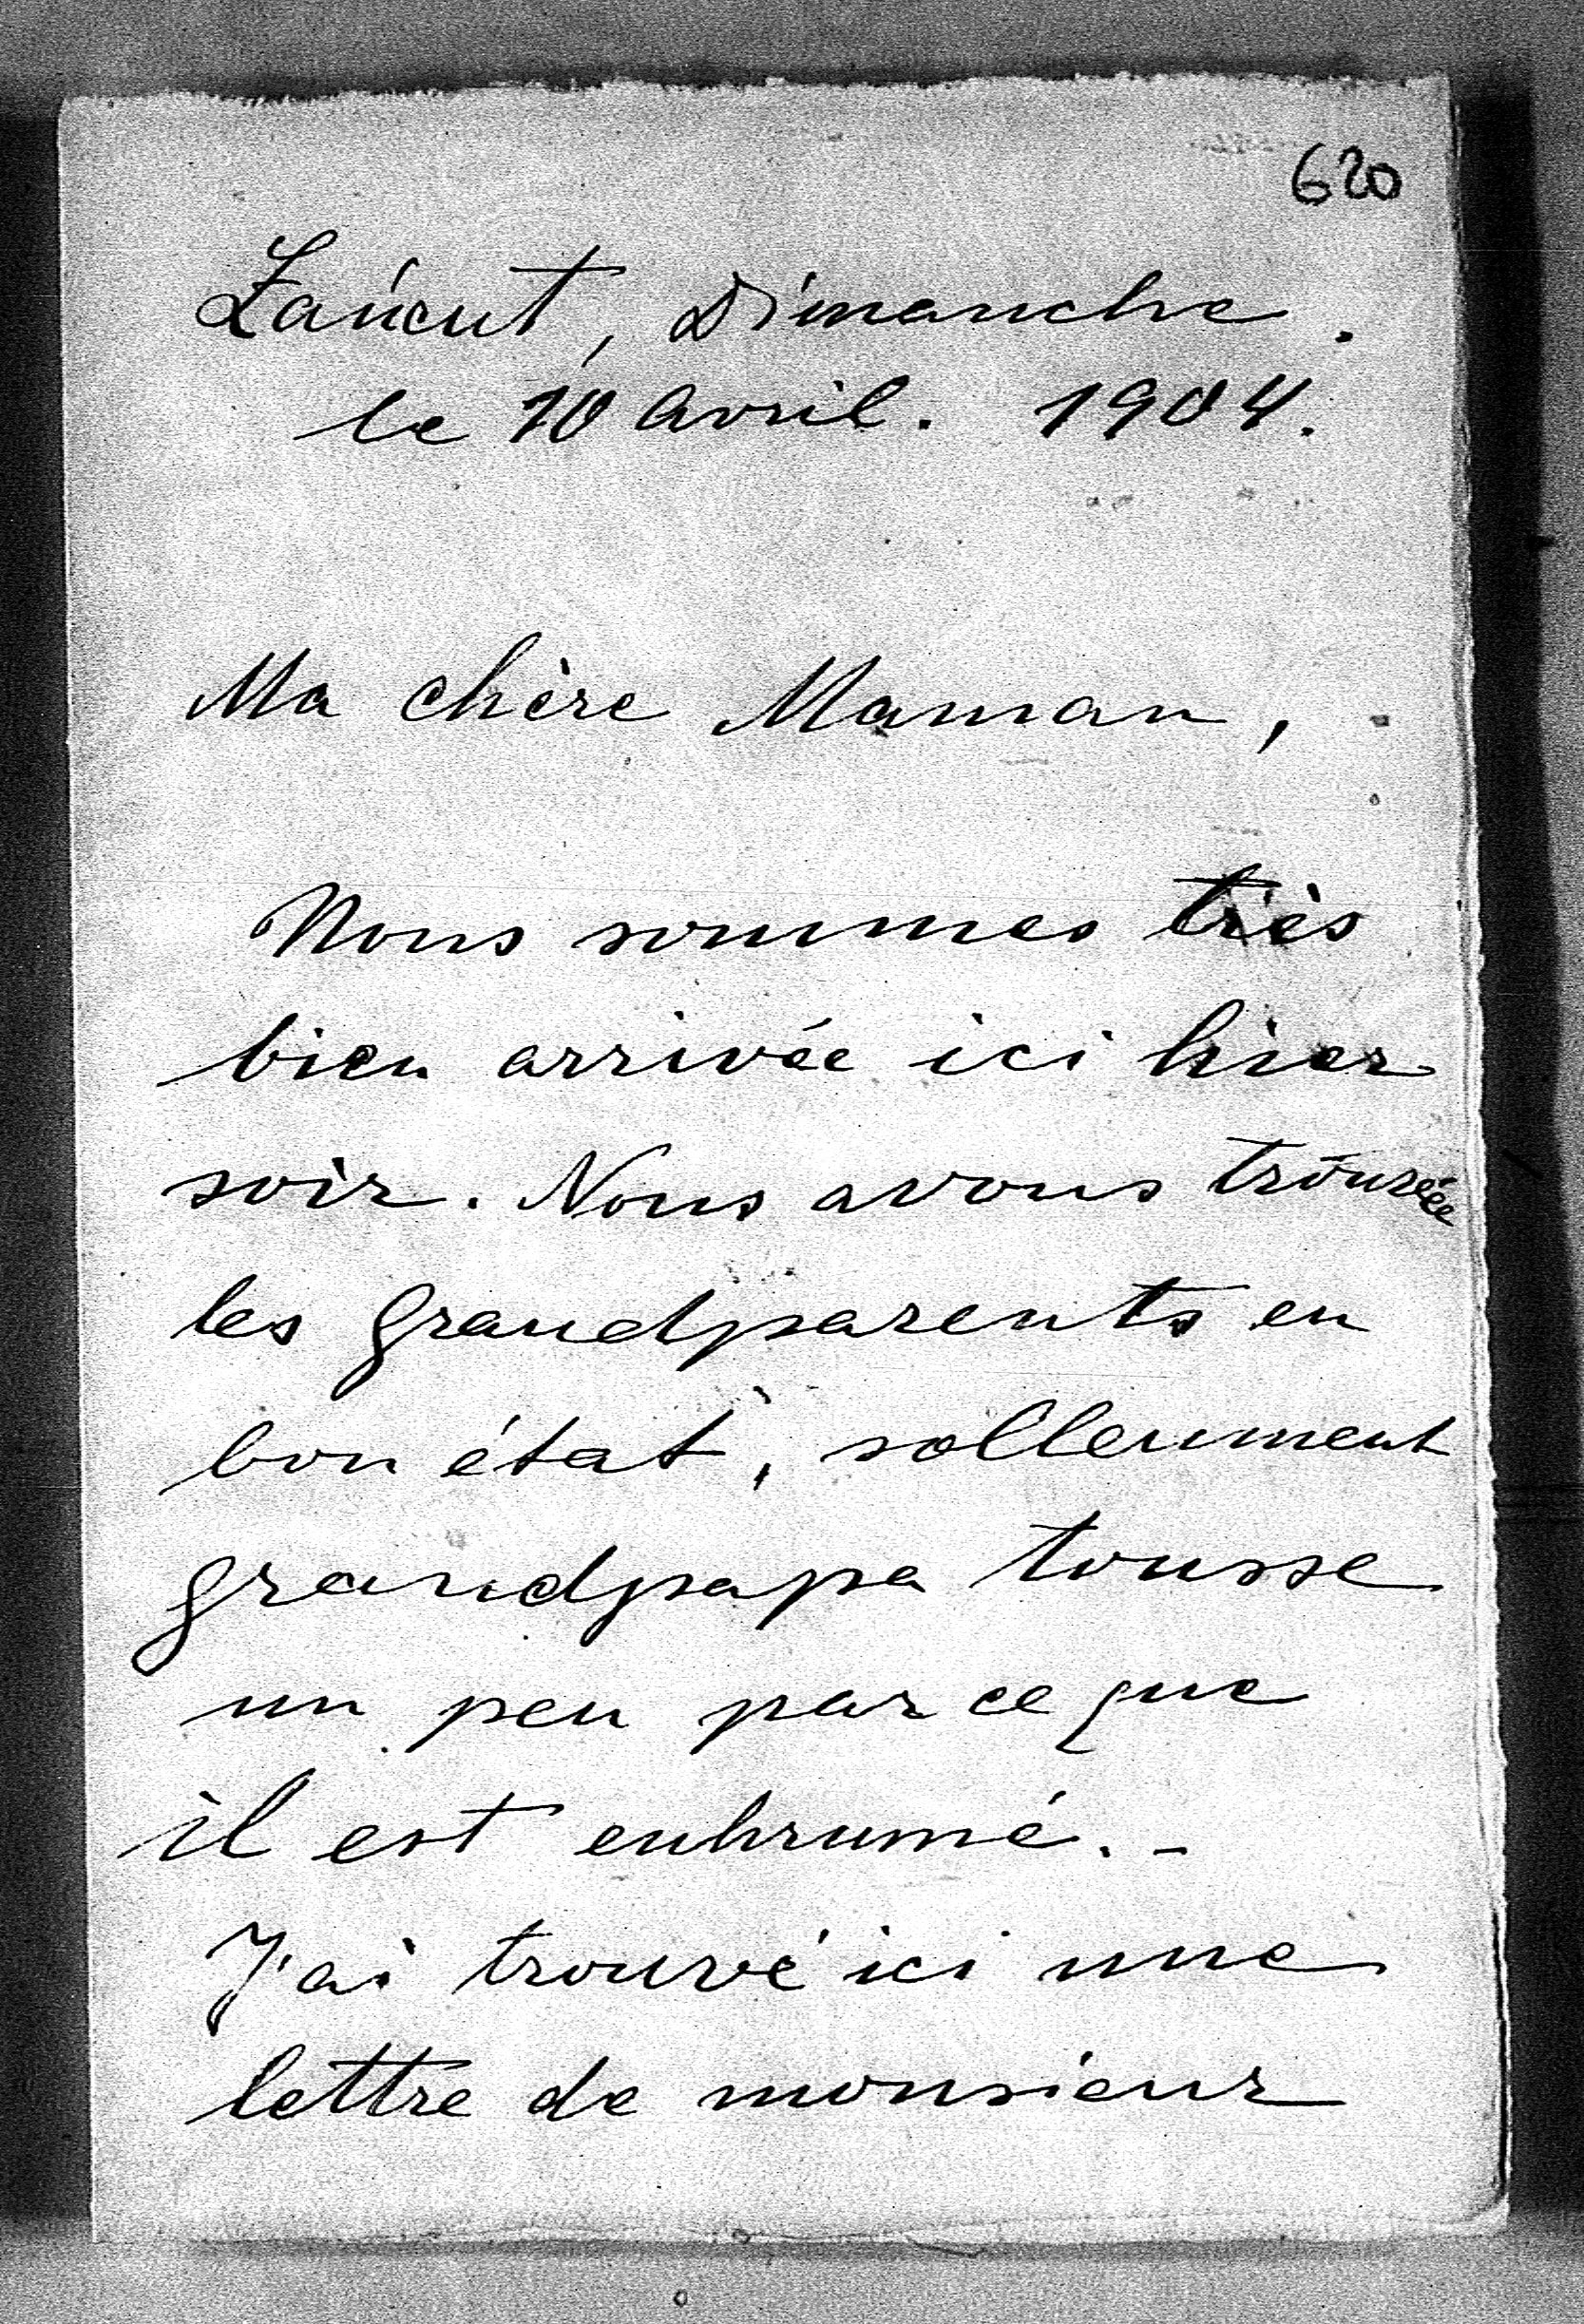 620
Łańcut, Dimanche.
le 10 Avril. 1904.
Ma chère Maman,
Nous sommes très
bien arrivée ici hier
soir. Nous avons trouvée
les grandparents en
bon état, sollemment
grandpapa tousse
un peu parceque
il est enhrumé. -
J'ai trouvé ici une
lettre de monsieur